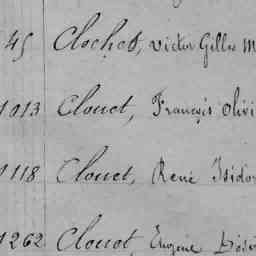 45 Clochet, Victor Gilles M
1013 Clouet, François Olivi
1118 Clouet, René Isidor
1262 Clouet, Eugène Désir